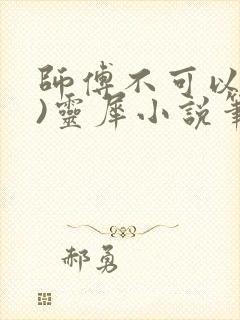 師傅不可以
)靈犀小說筆
郝勇